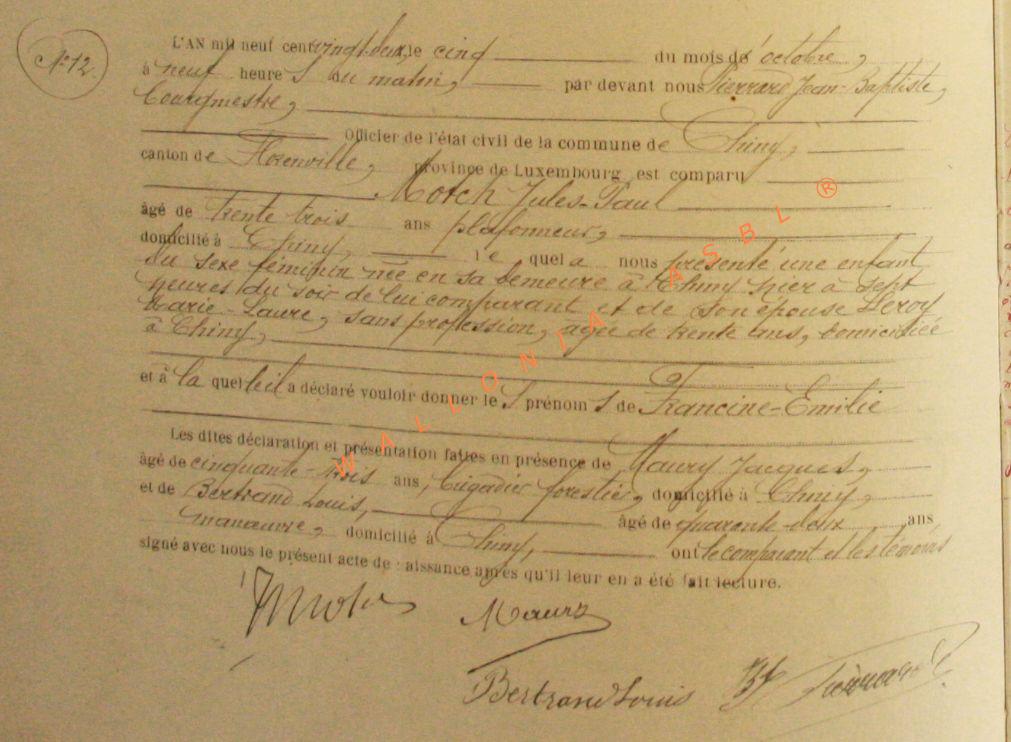 N° 12.
L'AN mil neuf cent vingt-deux, le cinq du mois de octobre,
à neuf heures du matin, par devant nous Pierrard Jean-Baptiste,
Bourgmestre,
Officier de l'état civil de la commune de Chiny,
canton de Florenville, province de Luxembourg, est comparu
Motch Jules-Paul
âgé de trente trois ans plafonneur,
domicilié à Chiny, lequel a nous présenté une enfant
du sexe féminin née en sa demeure à Chiny hier à sept
heures du soir de lui comparant et de son épouse Leroy
Marie-Laure, sans profession, agée de trente ans, domiciliée
à Chiny,
et à laquelle il a déclaré vouloir donner les prénoms de Francine-Emilie
Les dites déclaration et présentation faites en présence de Maury Jacques,
âgé de cinquante-trois ans, brigadier forestier, domicilié à Chiny,
et de Bertrand Louis, âgé de quarante-deux ans
manœuvre, domicilié à Chiny, ont le comparant et les témoins
signé avec nous le présent acte de naissance après qu'il leur en a été fait lecture.
Maury
Bertrand Louis
WALLONIA ASBL ®